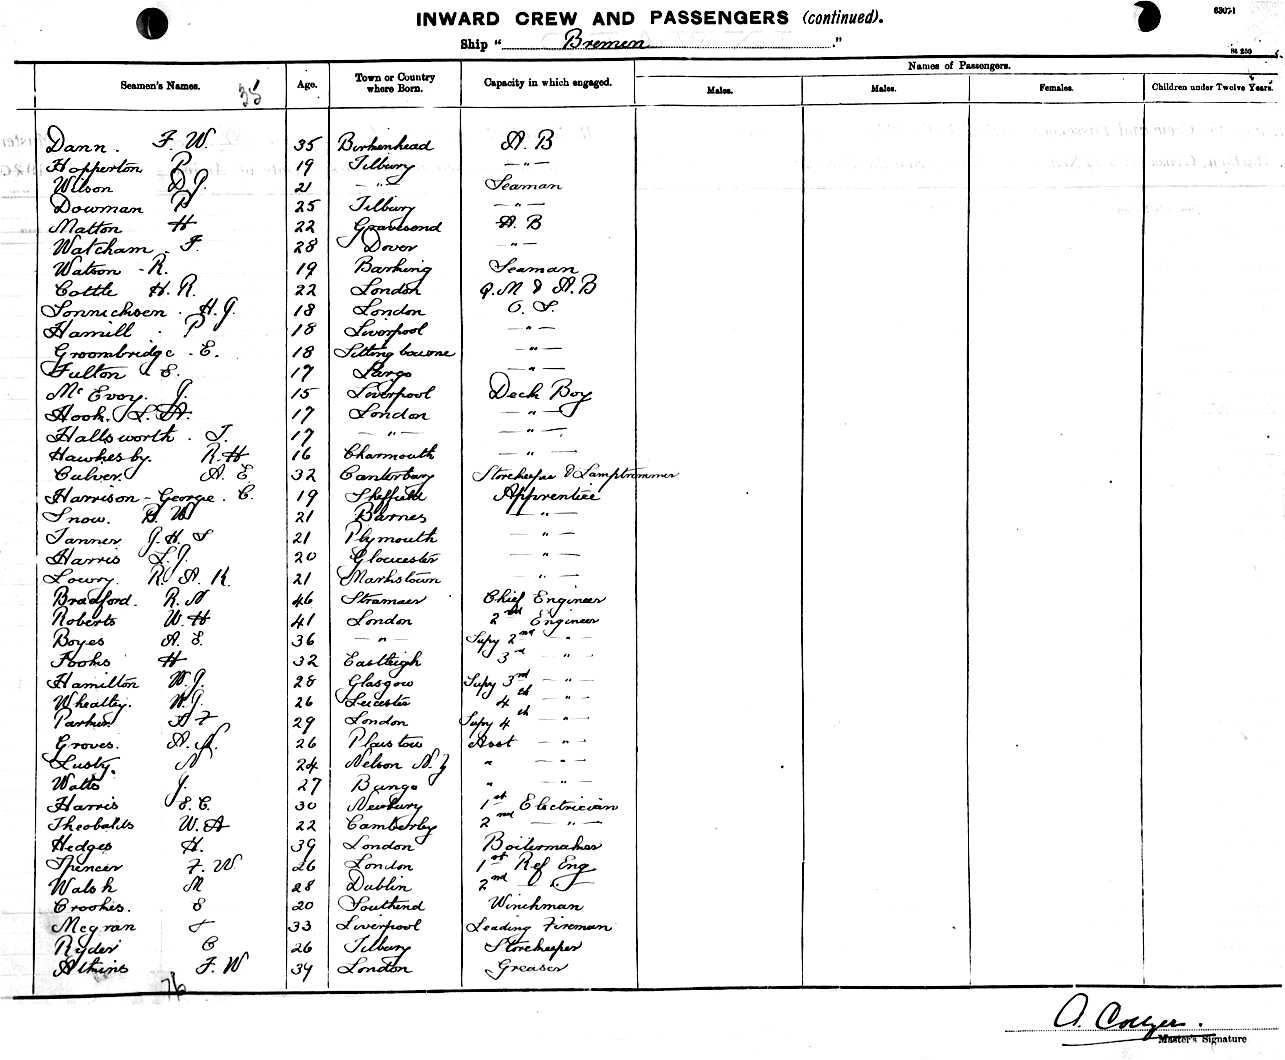 INWARD CREW AND PASSENGERS (continued).
63021
Ship " Bremen "
Seamen's Names. Age. Town or Country where Born. Capacity in which engaged. Names of Passengers.
Males. Males. Females. Children under Twelve Years.
35
Dann. F. W. 35 Birkenhead A. B
Hopperton P 19 Tilbury — " —
Wilson D J. 21 — " — Seaman
Dowman P 25 Tilbury — " —
Matton H 22 Gravesend A. B
Watcham. F. 28 Dover — " —
Watson - R. 19 Barking Seaman
Cottle H. R. 22 London Q. M & A. B
Sonnichsen. H. J. 18 London O. S.
Hamill. P 18 Liverpool — " —
Groombridge - E. 18 Sittingbourne — " —
Fulton E. 17 Largs — " —
Mc Evoy. J. 15 Liverpool Deck Boy
Hook. L. A. 17 London — " —
Hallsworth. T. 17 — " — — " —
Hawkesby. R. H 16 Charmouth — " —
Culver. A. E 32 Canterbury Storekeeper & Lamptrimmer
Harrison - George. C. 19 Sheffield Apprentice
Snow. W 21 Barnes — " —
Tanner J. H. S 21 Plymouth — " —
Harris L. J. 20 Gloucester — " —
Lowry. R. A. K. 21 Markstown — " —
Bradford. R. N 46 Chief Engineer
Roberts W. H 41 London 2nd Engineer
Boyes A. E. 36 — " — Supy 2nd — " —
Fooks H 32 Eastleigh 3rd — " —
Hamilton W. J. 28 Glasgow Supy 3rd — " —
Wheatley. W. J. 26 Leicester 4th — " —
Parker A F 29 London Supy 4th — " —
Groves. A. N. 26 Plaistow Asst — " —
Lusty. N 24 Nelson N. Z " — " —
Watts J. 27 " — " —
Harris E. C. 30 Newbury 1st Electrician
Theobalds W. A 22 Camberley 2nd — " —
Hedges H. 39 London Boilermaker
Spencer F. W 26 London 1st Ref Eng
Walsh M 28 Dublin 2nd — " —
Crookes. E 20 Southend Winchman
Megran 33 Liverpool Leading Fireman
Ryder C 26 Tilbury Storekeeper
Atkins F. W 34 London Greaser
76
A. Collyer.
Master's Signature